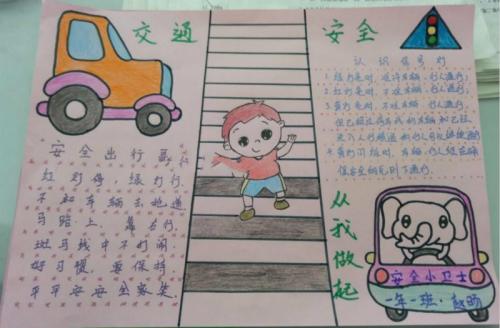 交通安全
安全出行歌
红灯停 绿灯行
不和车辆去抢道
马路上 靠右行
斑马线中不打闹
好习惯 要保持
平平安安全家笑
认识信号灯
1.绿灯亮时,准许车辆、行人通行;
2.红灯亮时,不准车辆、行人通行;
3.黄灯亮时,不准车辆、行人通行,
但已越过停止线的车辆和已经
进入人行横道的行人可以继续通行
4.黄灯闪烁时,车辆、行人须在确
保安全的原则下通行。
从我做起
安全小卫士
一年一班·